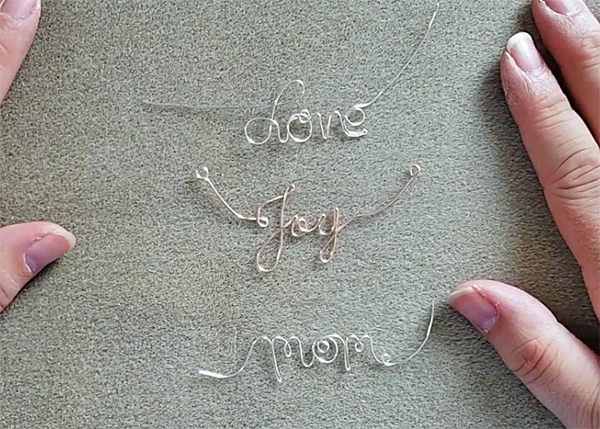 Love
Joy
mom